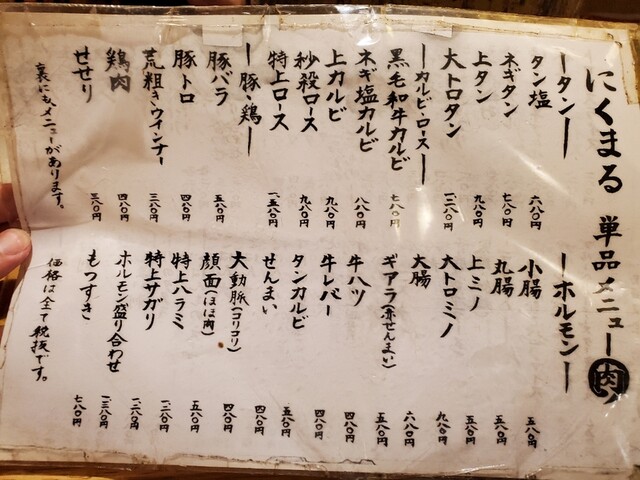 にくまる 単品メニュー 肉
ータンー
タン塩 六八〇円
ネギタン 七八〇円
上タン 九八〇円
大トロタン 一二八〇円
ーカルビ・ロースー
黒毛和牛カルビ 七八〇円
ネギ塩カルビ 八八〇円
上カルビ 九八〇円
秒殺ロース 九八〇円
特上ロース 一五八〇円
ー豚・鶏ー
豚バラ 五八〇円
豚トロ 四八〇円
荒粗きウインナー 三八〇円
鶏肉 四八〇円
せせり 三八〇円
裏にもメニューがあります。
ーホルモンー
小腸 五八〇円
丸腸 五八〇円
上ミノ 五八〇円
大トロミノ 九八〇円
大腸 六八〇円
ギアラ(赤せんまい) 五八〇円
牛ハツ 四八〇円
牛レバー 四八〇円
タンカルビ 五八〇円
せんまい 四八〇円
大動脈(コリコリ) 四八〇円
顔面(ほほ肉) 五八〇円
特上ハラミ 一二八〇円
特上サガリ 一二八〇円
ホルモン盛り合わせ 一三八〇円
もつすき 七八〇円
価格は全て税抜です。